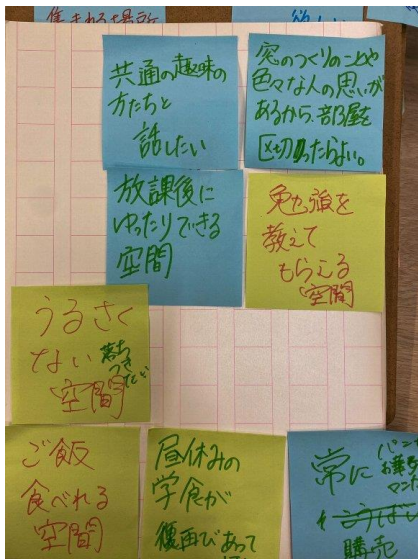 集まれる場所
共通の趣味の
方たちと
話したい
窓のつくりのことや
色々な人の思いが
あるから、部屋を
区切ったらよい。
放課後に
ゆったりできる
空間
勉強を
教えて
もらえる
空間
うるさく
ない
落ち
つきたい
空間
ご飯
食べれる
空間
昼休みの
学食が
復再びあって
常に
パン
お菓子
購売